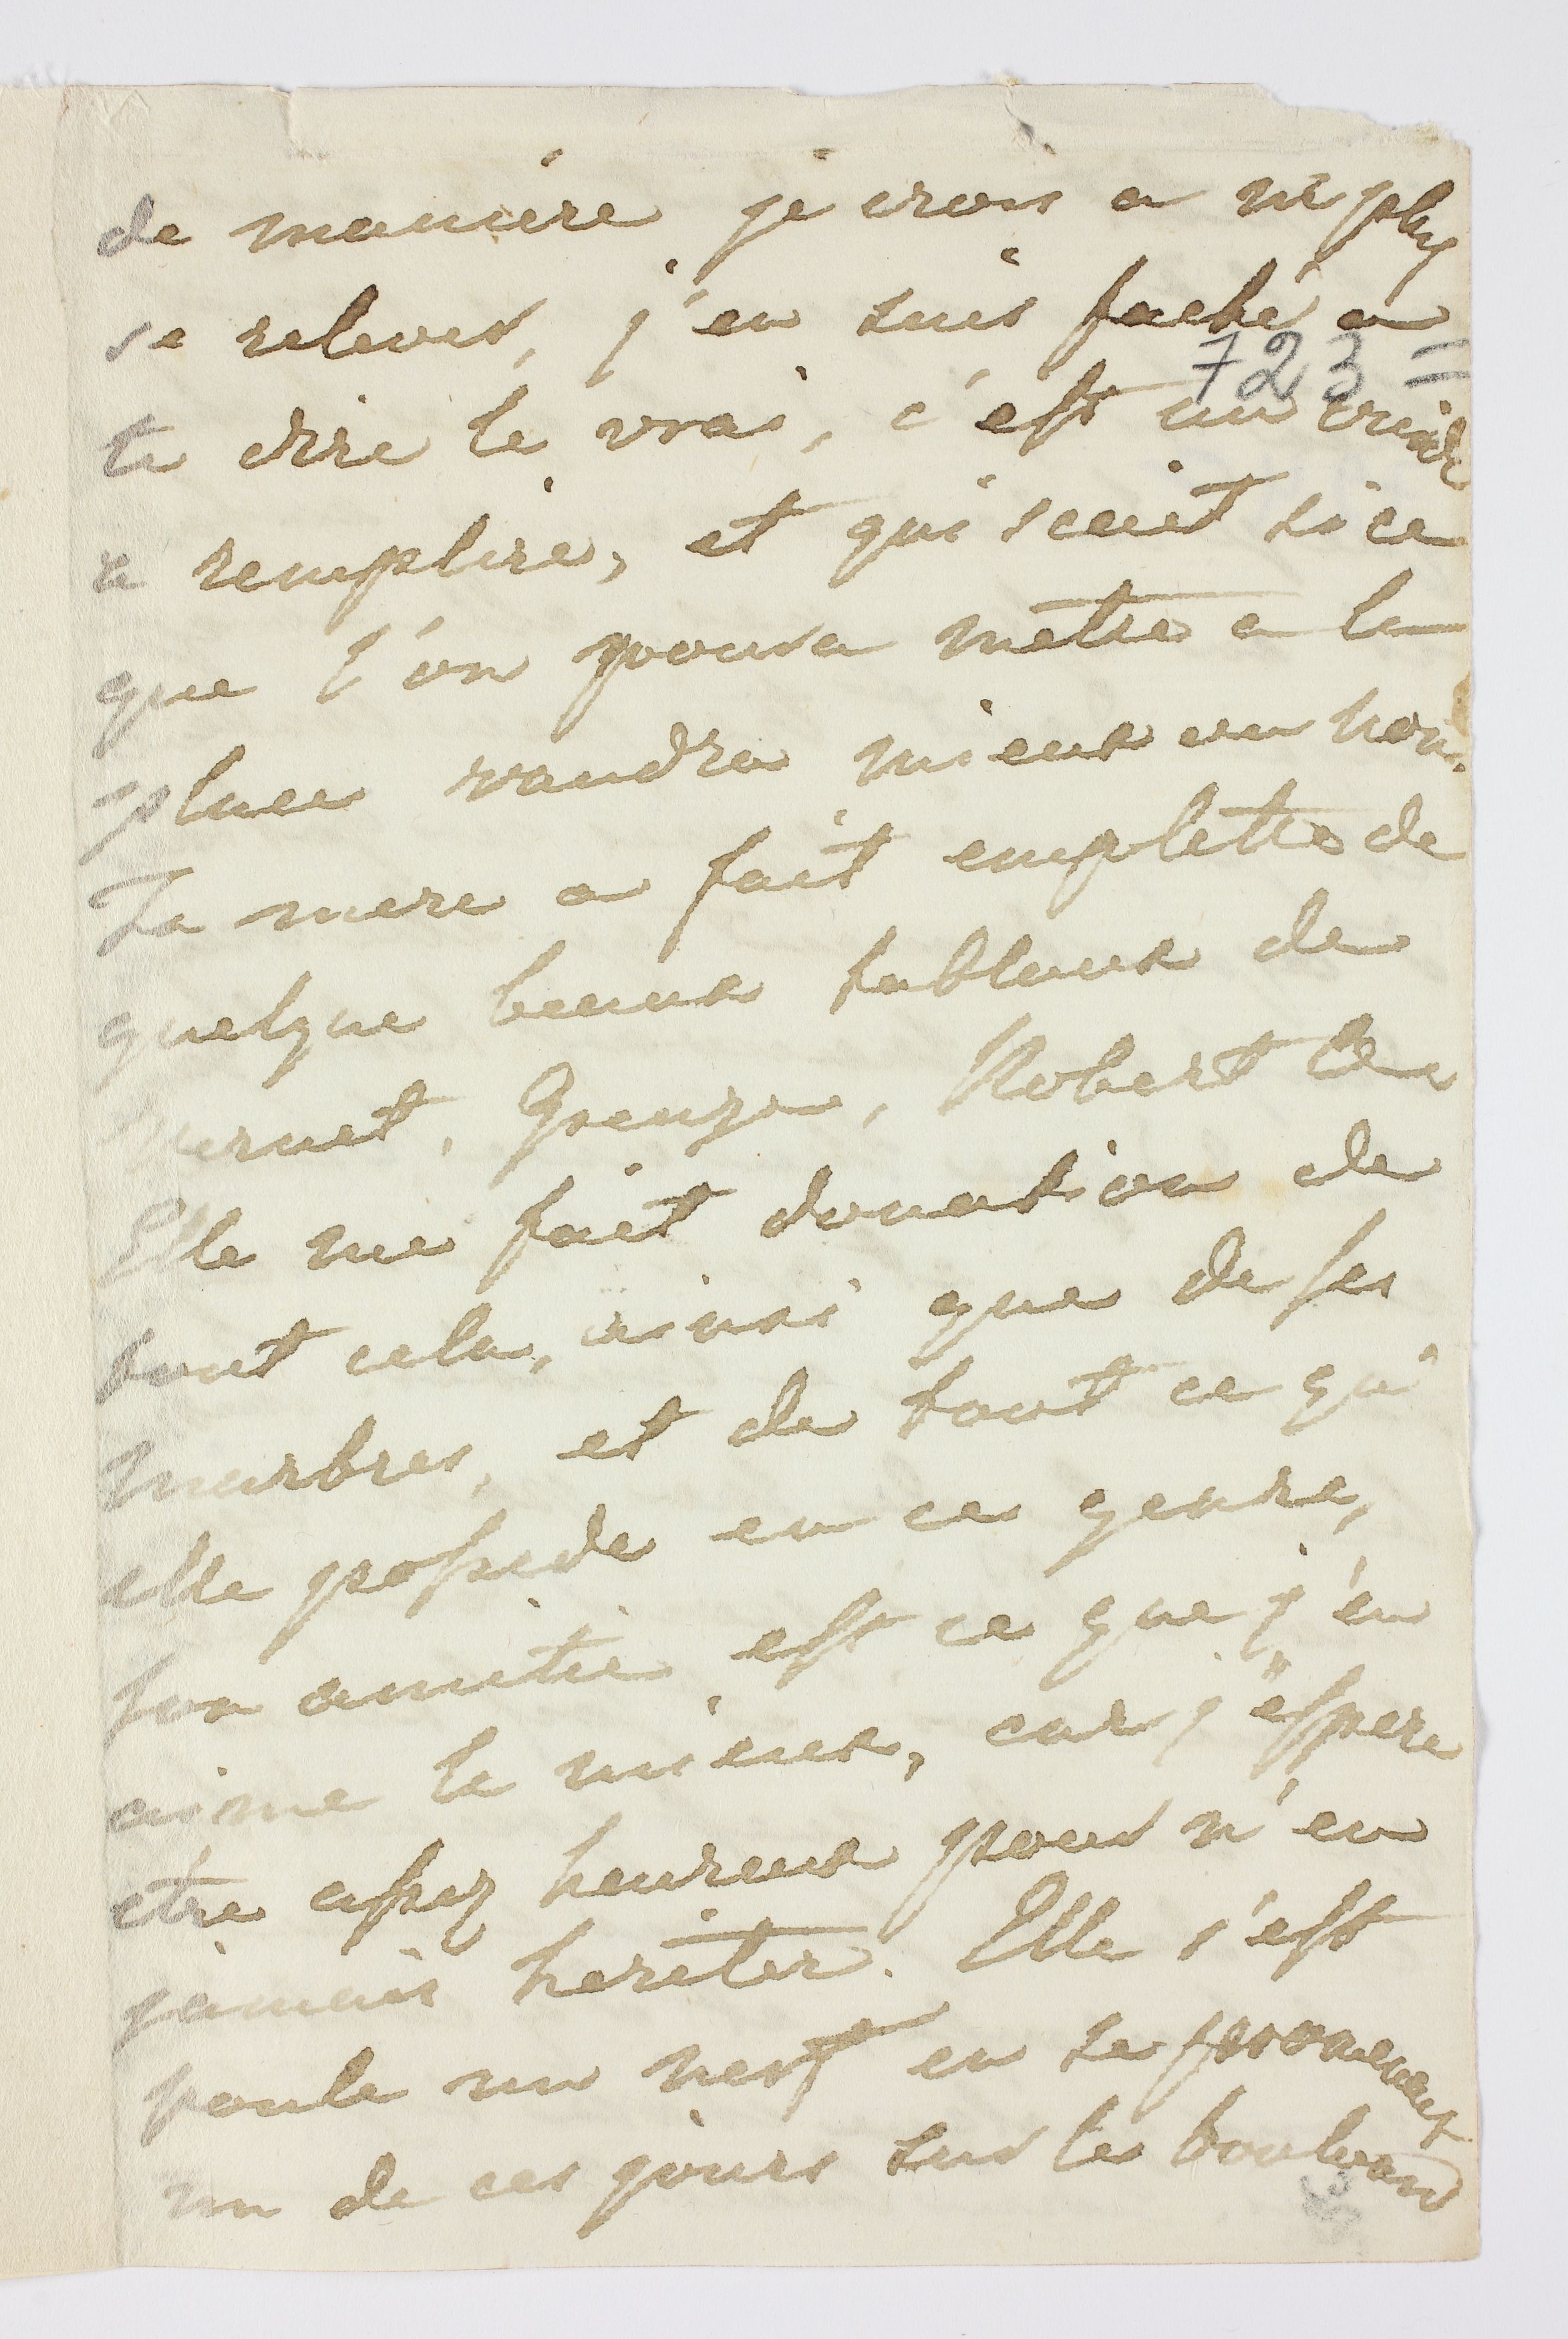 de maniere je crois a ne plus
se relever, j'en suis faché a
723 =
te dire le vrai, c'est un vuide
a remplire, et qui scait si ce
que l'on poura metre a la
place vaudra mieux ou non.
Ta mere a fait emplette de
quelque beaux tableaux de
Vernet, Greuze, Robert &c
Elle me fait donation de
tout cela, ainsi que de ses
marbres, et de tout ce qui
elle possede en ce genre,
son amitie est ce que j'en
aime le mieux, car j'espere
etre assez heureux pour n'en
jamais heriter. Elle s'est
foulé un nerf en se promenent
un de ces jours sur les boulevard